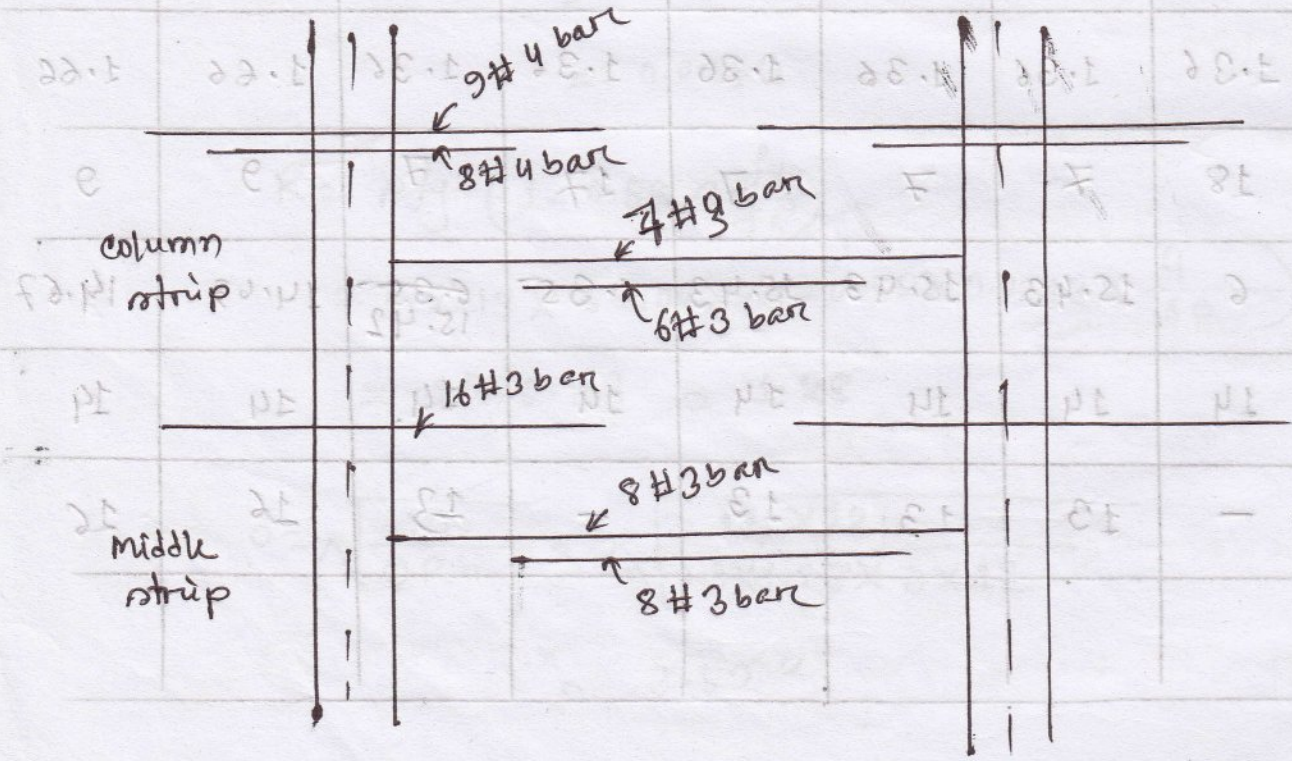 9#4 bar
8#4 bar
column
strip
6#3 bar
16#3 bar
8#3 bar
Middle
strip
8#3 bar